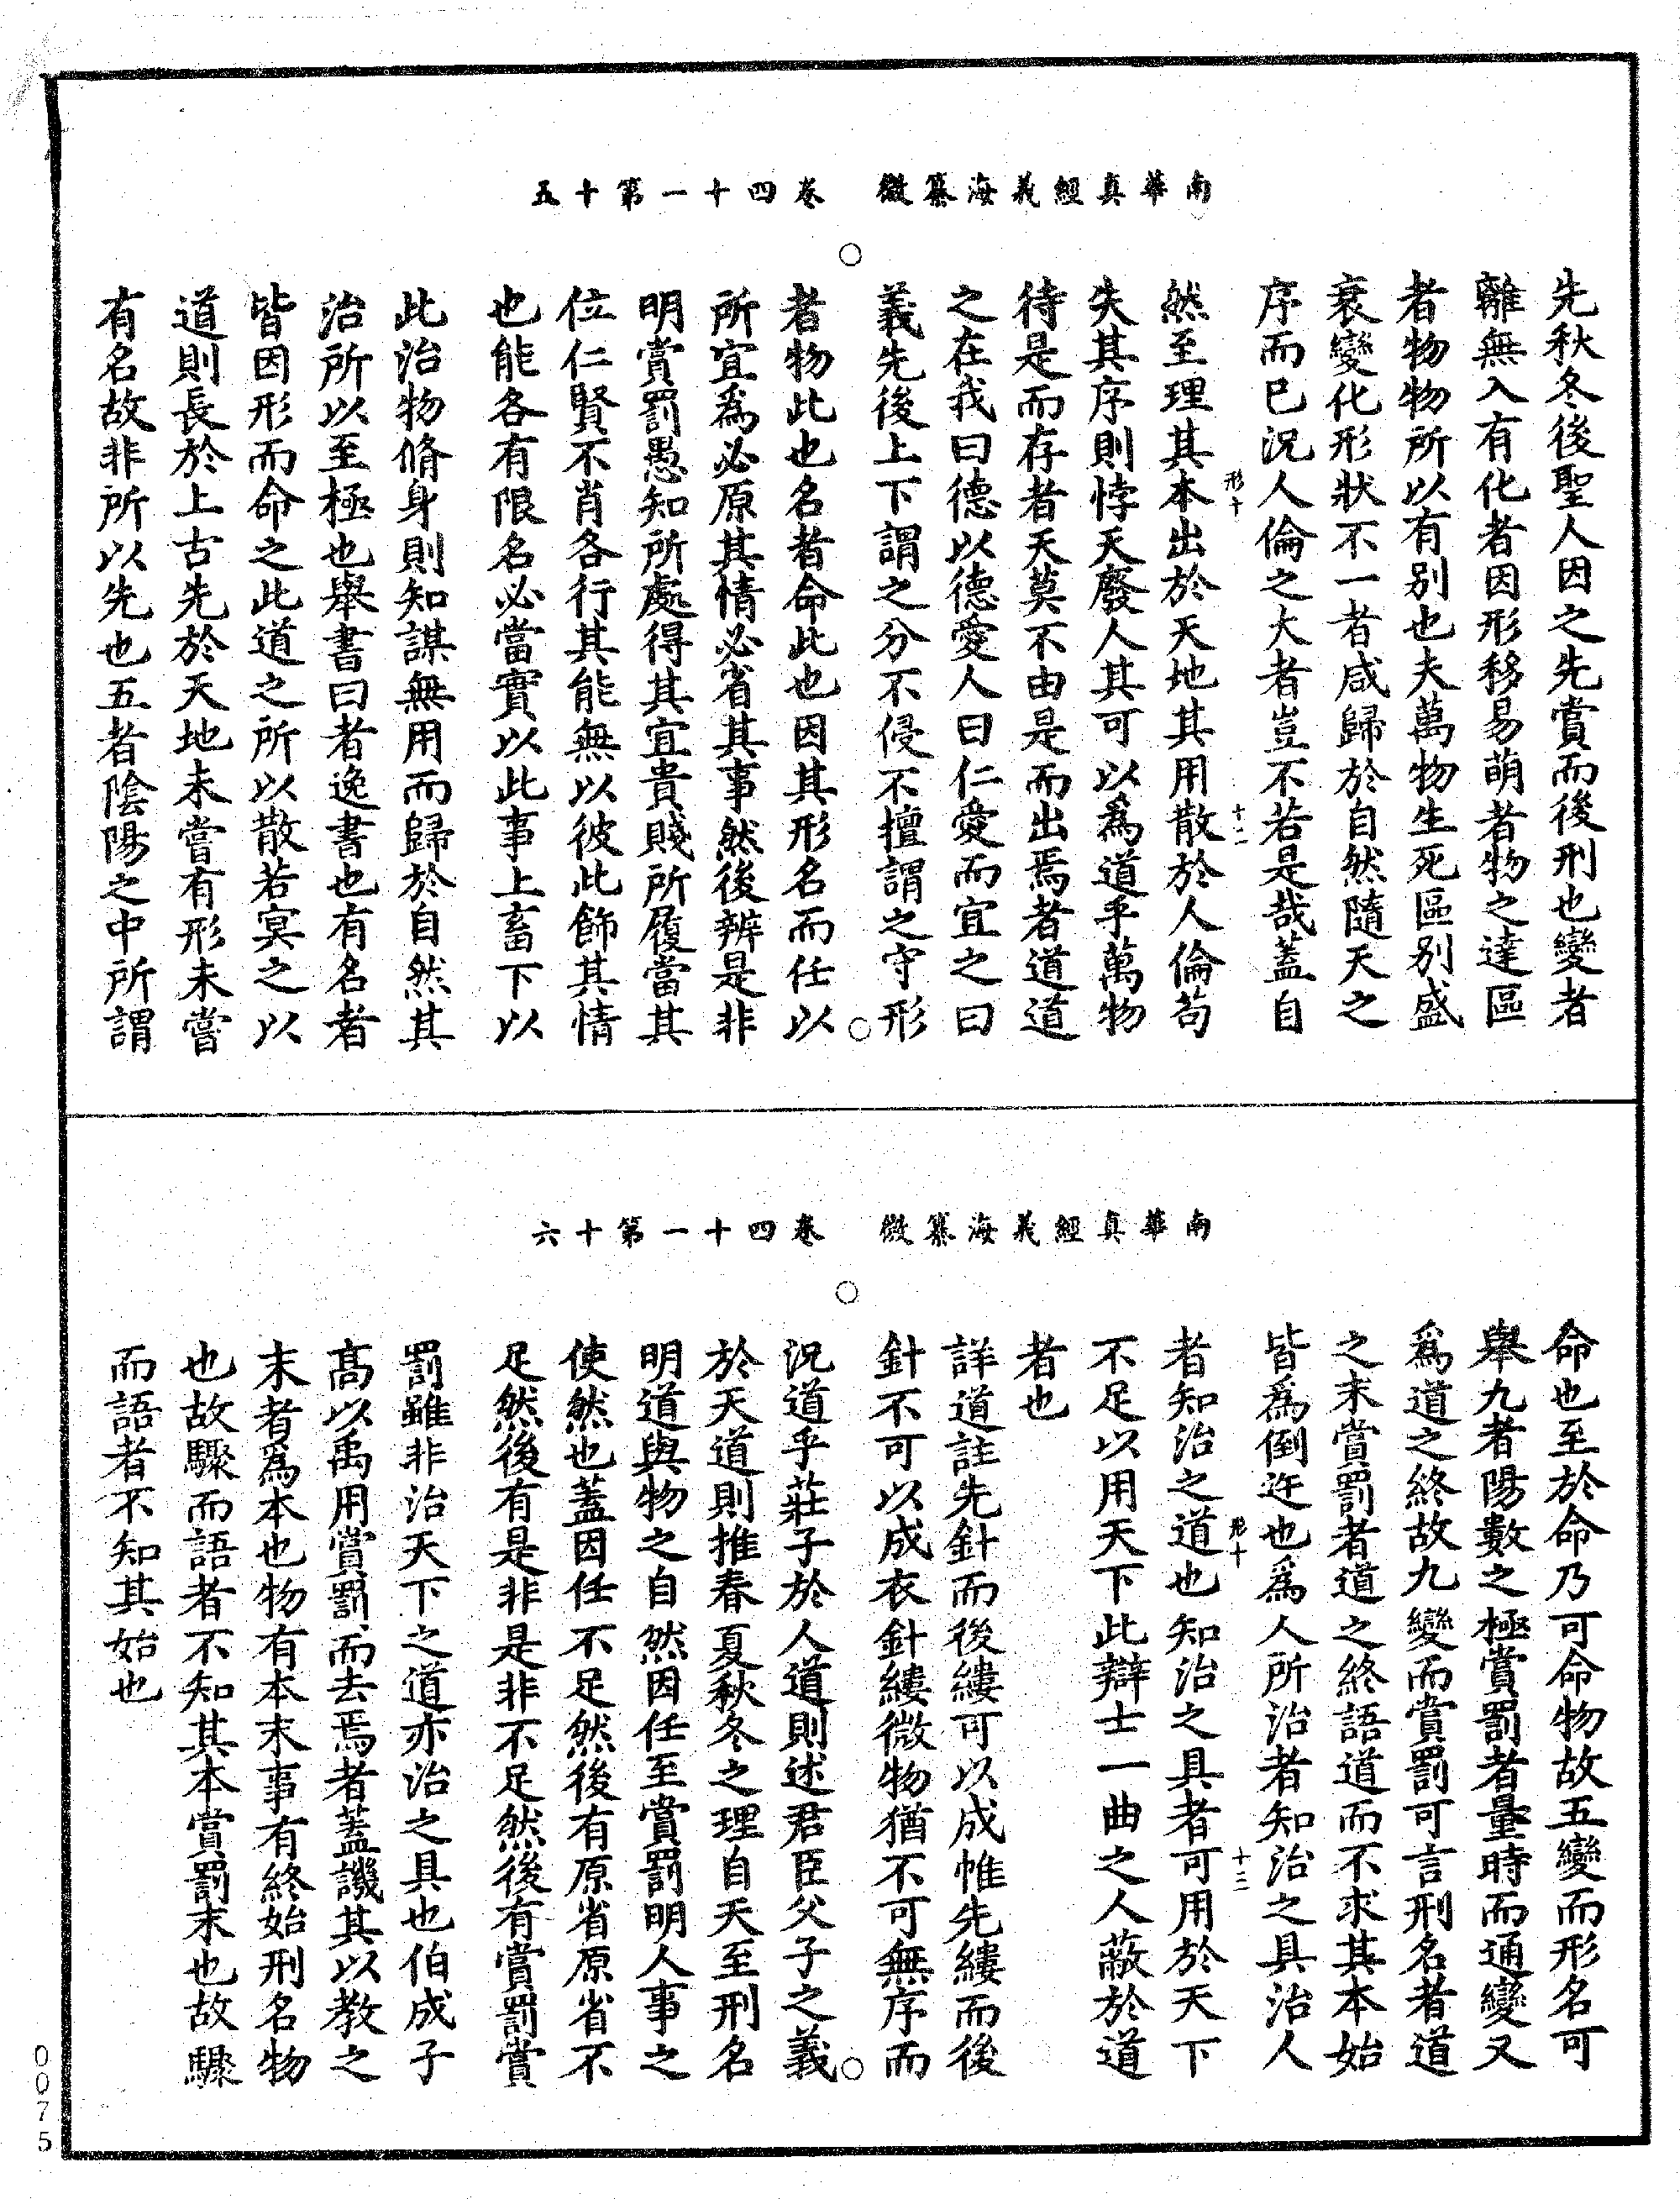 南華真經義海纂微 卷四十一第十五
先秋冬後聖人因之先賞而後刑也變者
離無入有化者因形移易萌者物之達區
者物物所以有別也夫萬物生死區別盛
衰變化形狀不一者咸歸於自然隨天之
序而已況人倫之大者豈不若是哉蓋自
形十
十二
然至理其本出於天地其用散於人倫苟
失其序則悖天廢人其可以爲道乎萬物
待是而存者天莫不由是而出焉者道道
之在我曰德以德愛人曰仁愛而宜之曰
義先後上下謂之分不侵不擅謂之守形
者物此也名者命此也因其形名而任以
所宜爲必原其情必省其事然後辨是非
明賞罰愚知所處得其宜貴賤所履當其
位仁賢不肖各行其能無以彼此飾其情
也能各有限名必當實以此事上畜下以
此治物脩身則知謀無用而歸於自然其
治所以至極也舉書曰者逸書也有名者
皆因形而命之此道之所以散若冥之以
道則長於上古先於天地未嘗有形未嘗
有名故非所以先也五者陰陽之中所謂
南華真經義海纂微 卷四十一第十六
命也至於命乃可命物故五變而形名可
舉九者陽數之極賞罰者量時而通變又
爲道之終故九變而賞罰可言刑名者道
之末賞罰者道之終語道而不求其本始
皆爲倒迕也爲人所治者知治之具治人
形十
十三
者知治之道也知治之具者可用於天下
不足以用天下此辯士一曲之人蔽於道
者也
詳道註先針而後縷可以成帷先縷而後
針不可以成衣針縷微物猶不可無序而
況道乎莊子於人道則述君臣父子之義
於天道則推春夏秋冬之理自天至刑名
明道與物之自然因任至賞罰明人事之
使然也蓋因任不足然後有原省原省不
足然後有是非是非不足然後有賞罰賞
罰雖非治天下之道亦治之具也伯成子
高以禹用賞罰而去焉者蓋譏其以教之
末者爲本也物有本末事有終始刑名物
也故驟而語者不知其本賞罰末也故驟
而語者不知其始也
0075